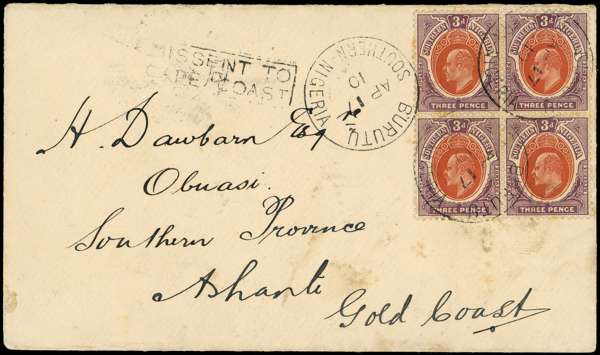 MISSENT TO
CAPE COAST
BURUTU
SOUTHERN NIGERIA
AP 10
3d
SOUTHERN NIGERIA
THREE PENCE
3d
SOUTHERN NIGERIA
THREE PENCE
3d
SOUTHERN NIGERIA
THREE PENCE
3d
SOUTHERN NIGERIA
THREE PENCE
H. Dawbarn Esqre
Obuasi.
Southern Province
Ashanti
Gold Coast